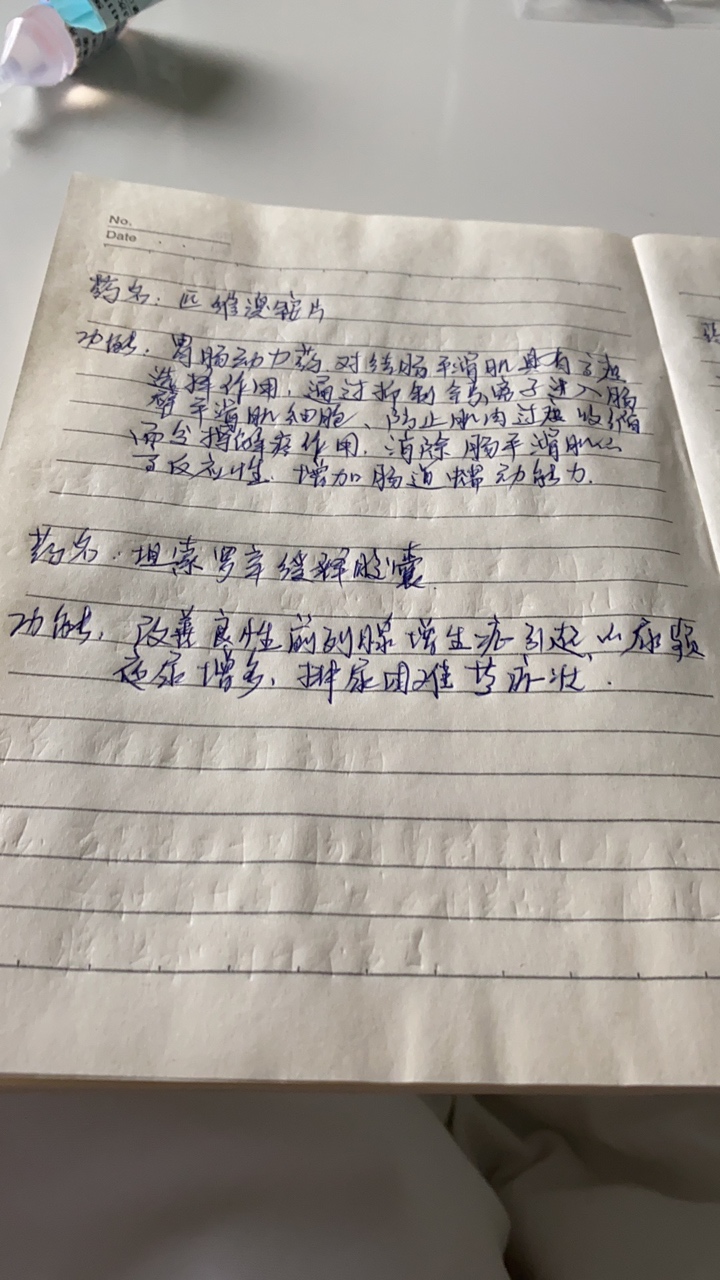 No.
Date
药名：匹维溴铵片
功能：胃肠动力药 对结肠平滑肌具有高度
选择作用，通过抑制钙离子进入肠
壁平滑肌细胞、防止肌肉过度收缩
而发挥解痉作用，消除肠平滑肌的
高反应性，增加肠道蠕动能力.
药名：坦索罗辛缓释胶囊.
功能：改善良性前列腺增生症引起的尿频
夜尿增多、排尿困难等症状.